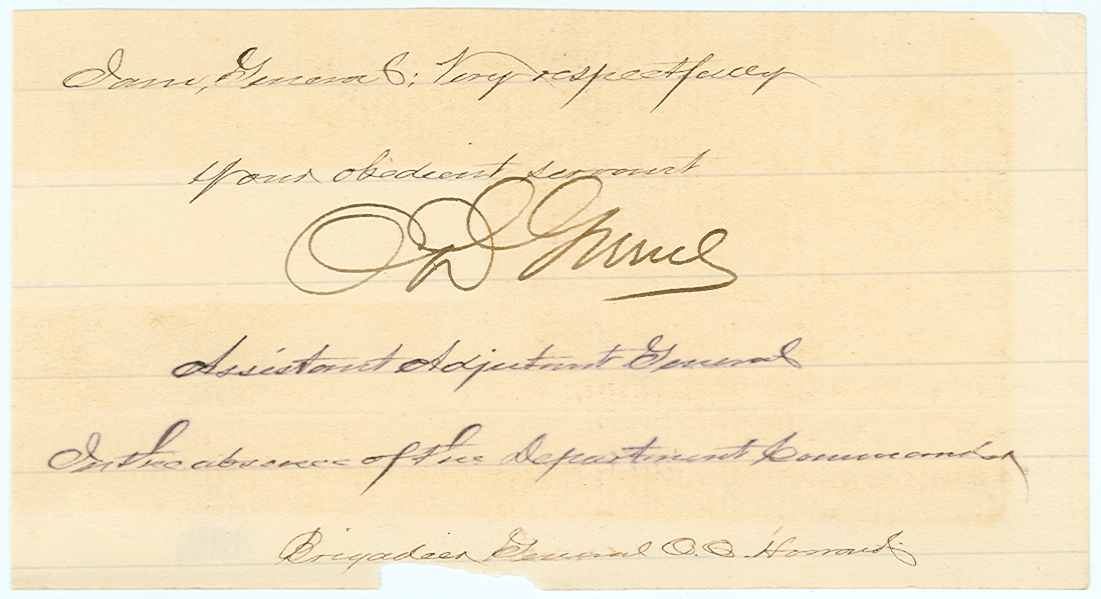 I am, General; Very respectfully
Your obedient servant
O D Greene
Assistant Adjutant General
In the absence of the Department Commander
Brigadier General O. O. Howard.